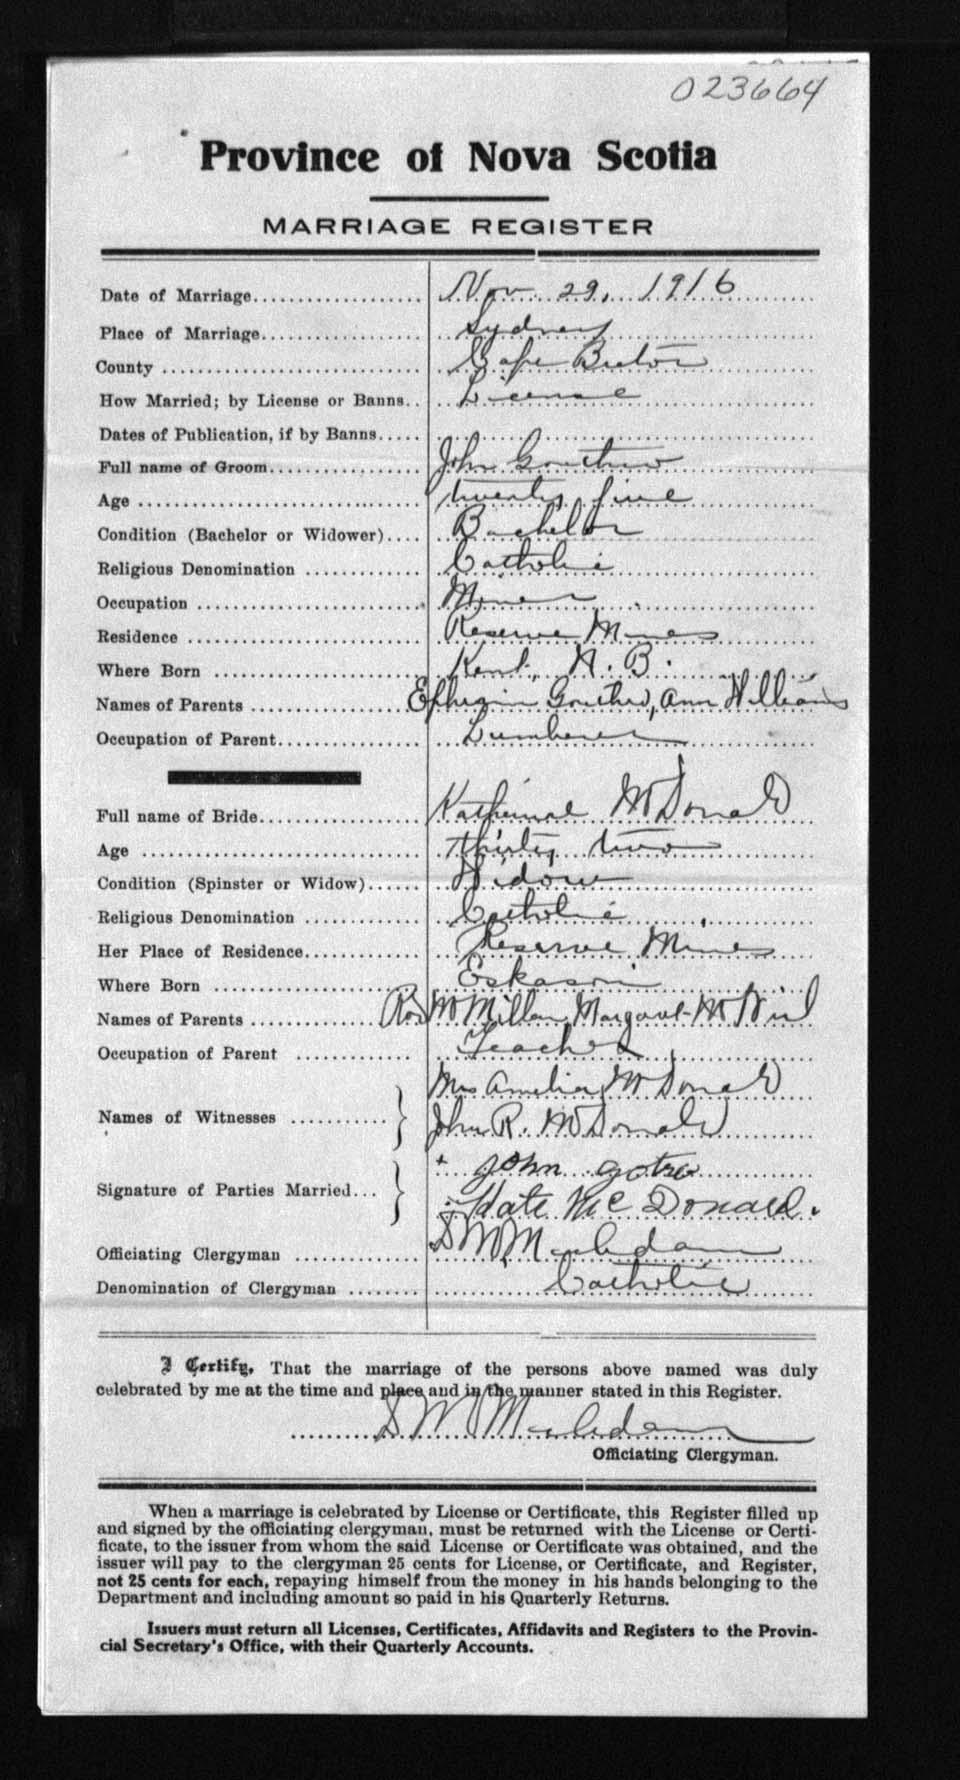 023664
Province of Nova Scotia
MARRIAGE REGISTER
Date of Marriage Nov 29, 1916
Place of Marriage Sydney
County Cape Breton
How Married; by License or Banns License
Dates of Publication, if by Banns
Full name of Groom John Gouthro
Age twenty five
Condition (Bachelor or Widower) Bachelor
Religious Denomination Catholic
Occupation Miner
Residence Reserve Mines
Where Born Kent, N. B.
Names of Parents Gouthro, Ann Williams
Occupation of Parent Lumberer
Full name of Bride McDonald
Age thirty two
Condition (Spinster or Widow) Widow
Religious Denomination Catholic
Her Place of Residence Reserve Mines
Where Born Eskasoni
Names of Parents McMillan, Margaret McNeil
Occupation of Parent Teacher
Mrs Amelia McDonald
Names of Witnesses
John R. McDonald
John gotro
Signature of Parties Married
Kate McDonald.
Officiating Clergyman
Denomination of Clergyman Catholic
I Certify, That the marriage of the persons above named was duly
celebrated by me at the time and place and in the manner stated in this Register.
Officiating Clergyman.
When a marriage is celebrated by License or Certificate, this Register filled up
and signed by the officiating clergyman, must be returned with the License or Certi-
ficate, to the issuer from whom the said License or Certificate was obtained, and the
issuer will pay to the clergyman 25 cents for License, or Certificate, and Register,
not 25 cents for each, repaying himself from the money in his hands belonging to the
Department and including amount so paid in his Quarterly Returns.
Issuers must return all Licenses, Certificates, Affidavits and Registers to the Provin-
cial Secretary's Office, with their Quarterly Accounts.